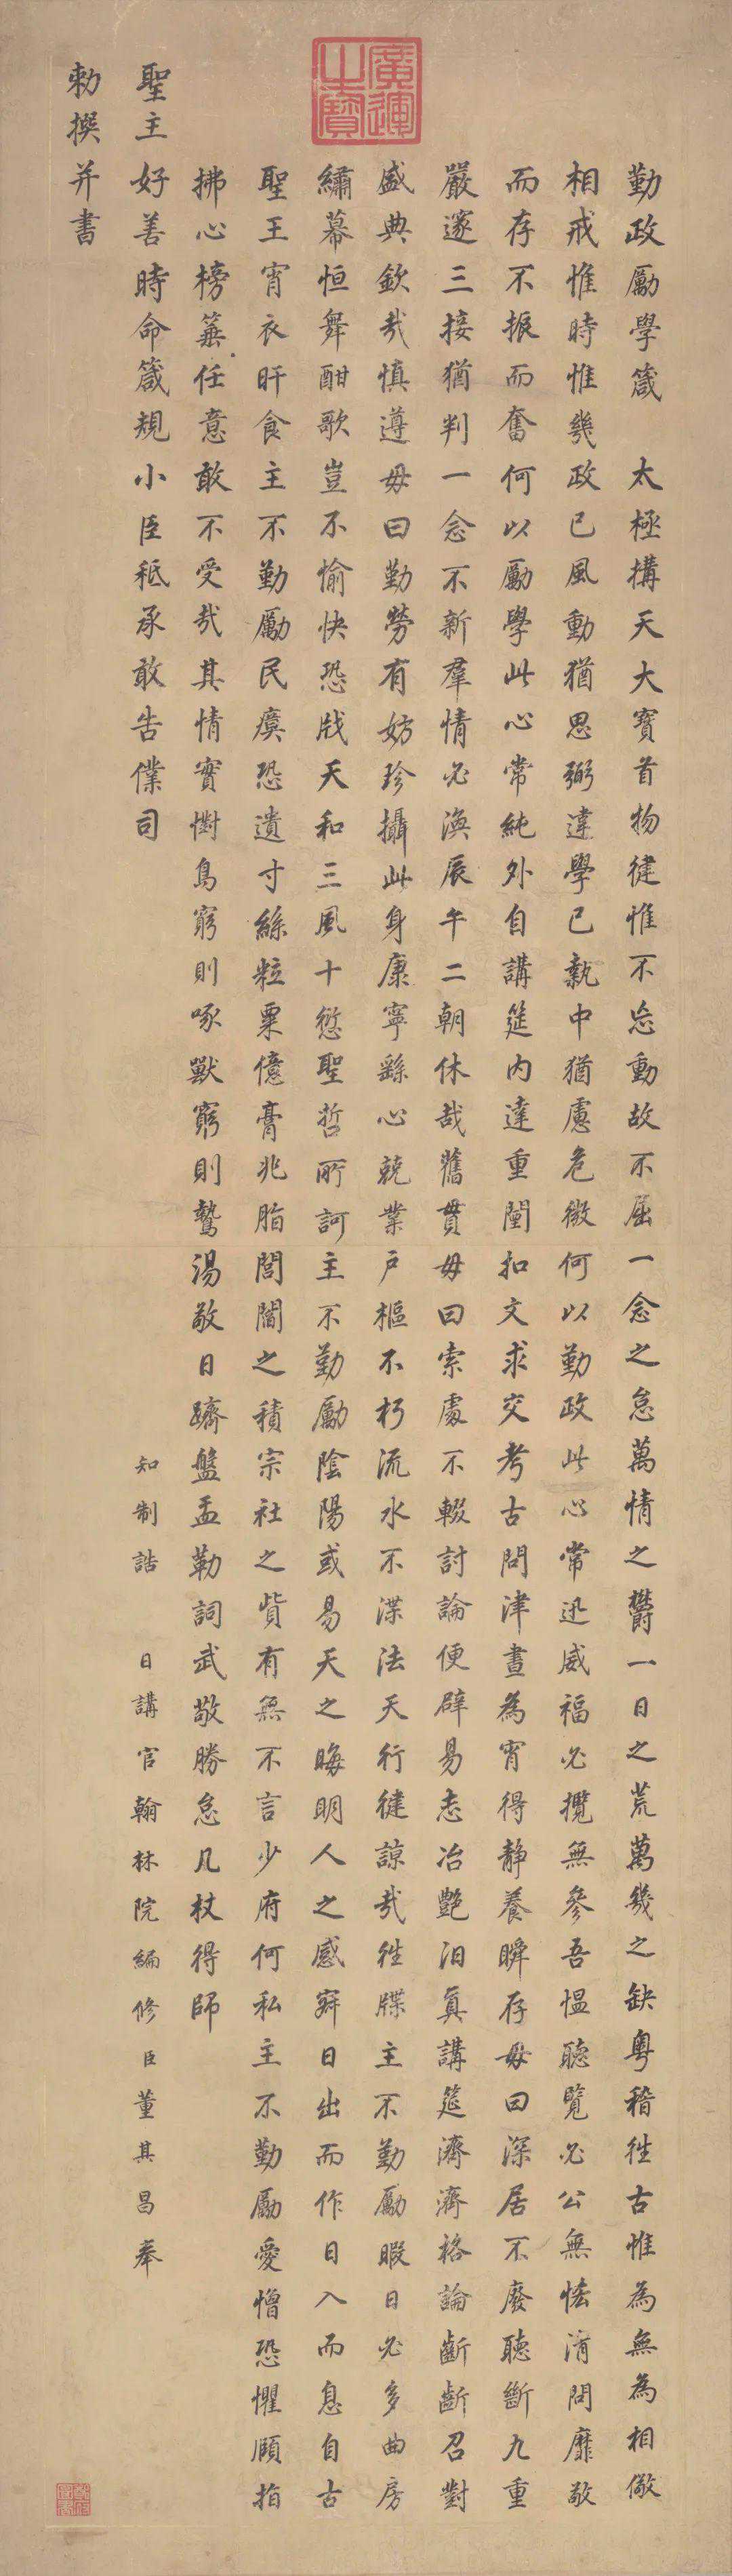 廣運之寶
勤政勵學箴 太極搆天大寶首物健惟不息動故不屈一念之怠萬情之欝一日之荒萬幾之缺粵稽往古惟為無為相儆
相戒惟時惟幾政已風動猶思弼違學已執中猶慮危微何以勤政此心常迅威福必攬無參吾愠聽覽必公無恡清問靡敢
而存不振而奮何以勵學此心常純外自講筵內達重闈扣文求交考古問津晝為宵得靜養瞬存毋曰深居不廢聽斷九重
嚴邃三接猶判一念不新羣情必渙辰午二朝休哉舊貫毋曰索處不輟討論便辟易志冶艷汩真講筵濟濟格論齗齗召對
盛典欽哉慎遵毋曰勤勞有妨珍攝此身康寧繇心兢業戶樞不朽流水不渫法天行健諒哉往牒主不勤勵暇日必多曲房
繡幕恒舞酣歌豈不愉快恐戕天和三風十愆聖哲所訶主不勤勵陰陽或易天之晦明人之感寤日出而作日入而息自古
聖王宵衣旰食主不勤勵民瘼恐遺寸絲粒粟億膏兆脂閭閻之積宗社之貲有無不言少府何私主不勤勵愛憎恐懼頤指
拂心榜箠任意敢不受哉其情實懟鳥窮則啄獸窮則鷙湯敬日躋盤盂勒詞武敬勝怠几杖得師
聖主好善時命箴規小臣祗承敢告僕司 知制誥 日講官翰林院編修臣董其昌奉
勅撰并書